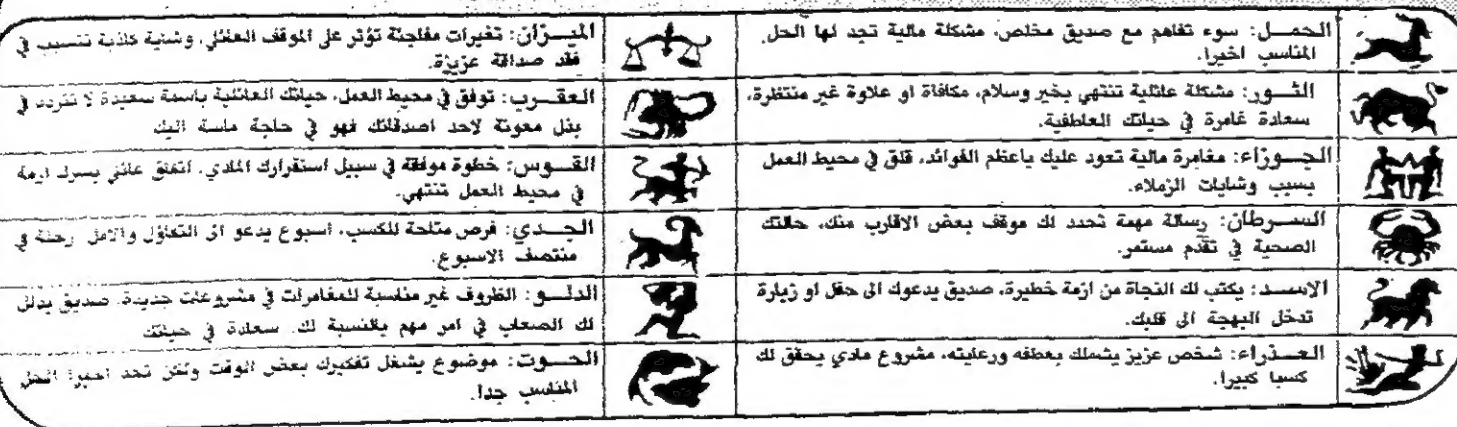 الحمـــل: سوء تفاهم مع صديق مخلص، مشكلة مالية تجد لها الحل
المناسب اخيرا.
الثـــور: مشكلة عائلية تنتهي بخير وسلام، مكافاة او علاوة غير منتظرة،
سعادة غامرة في حياتك العاطفية.
الجـــوزاء: مغامرة مالية تعود عليك باعظم الفوائد، قلق في محيط العمل
بسبب وشايات الزملاء.
الســـرطان: رسالة مهمة تحدد لك موقف بعض الاقارب منك، حالتك
الصحية في تقدم مستمر.
الاســـد: يكتب لك النجاة من ازمة خطيرة، صديق يدعوك الى حفل او زيارة
تدخل البهجة الى قلبك.
العـــذراء: شخص عزيز يشملك بعطفه ورعايته، مشروع مادي يحقق لك
كسبا كبيرا.
الميـــزان: تغيرات مفاجئة تؤثر على الموقف العائلي، وشاية كاذبة تتسبب في
فقد صداقة عزيزة.
العقـــرب: توفق في محيط العمل، حياتك العائلية باسمة سعيدة لا تتردد في
بذل معونة لاحد اصدقائك فهو في حاجة ماسة اليك
القـــوس: خطوة موفقة في سبيل استقرارك المادي، اتفاق عائلي يسرك ازمة
في محيط العمل تنتهي.
الجـــدي: فرص متاحة للكسب، اسبوع يدعو الى التفاؤل والامل رحلة في
منتصف الاسبوع.
الدلـــو: الظروف غير مناسبة للمغامرات في مشروعات جديدة، صديق يذلل
لك الصعاب في امر مهم بالنسبة لك. سعادة في حياتك
الحـــوت: موضوع يشغل تفكيرك بعض الوقت ولكن تجد اخيرا الحل
المناسب جدا.